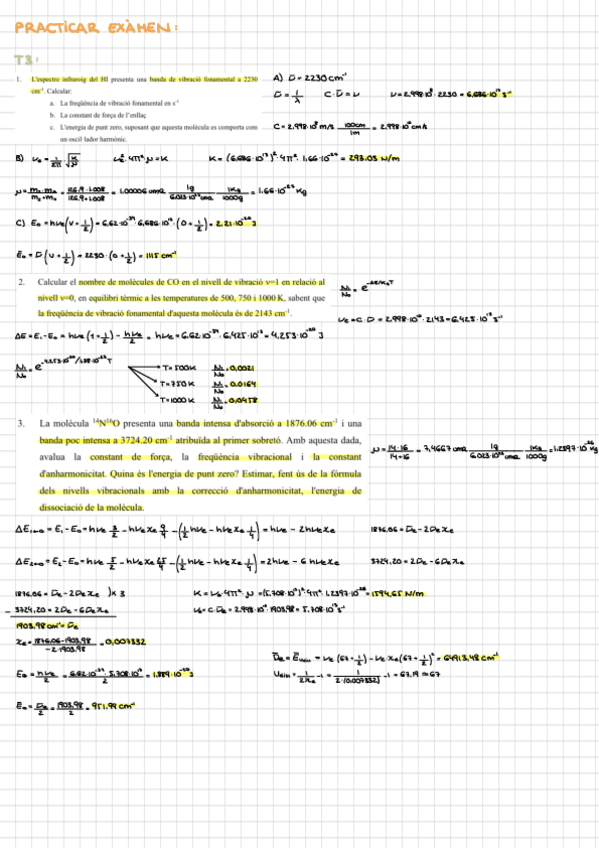 PRACTICAR EXÀMEN:
T3:
1. L'espectre infraroig del HI presenta una banda de vibració fonamental a 2230
cm⁻¹. Calcular:
a. La freqüència de vibració fonamental en s⁻¹
b. La constant de força de l'enllaç
c. L'energia de punt zero, suposant que aquesta molècula es comporta com
un oscil·lador harmònic.
A) ῡ = 2230 cm⁻¹
ῡ = 1/λ C·ῡ = ν ν = 2,998·10¹⁰·2230 = 6,686·10¹³ s⁻¹
C = 2,998·10⁸ m/s 100cm/1m = 2,998·10¹⁰ cm/s
B) νₑ = 1/2π √K/μ νₑ²·4π²·μ = K K = (6,686·10¹³)²·4π²·1,66·10⁻²⁷ = 293,03 N/m
μ = m₁·m₂/m₁+m₂ = 126,9·1,008/126,9+1,008 = 1,00006 uma 1g/6,023·10²³ uma 1Kg/1000g = 1,66·10⁻²⁷ Kg
C) E₀ = hνₑ(v + 1/2) = 6,62·10⁻³⁴·6,686·10¹³·(0 + 1/2) = 2,21·10⁻²⁰ J
E₀ = ῡ(v + 1/2) = 2230·(0 + 1/2) = 1115 cm⁻¹
2. Calcular el nombre de molècules de CO en el nivell de vibració v=1 en relació al
nivell v=0, en equilibri tèrmic a les temperatures de 500, 750 i 1000 K, sabent que
la freqüència de vibració fonamental d'aquesta molècula és de 2143 cm⁻¹.
N₁/N₀ = e^(-ΔE/K·T)
νₑ = C·ῡ = 2,998·10¹⁰·2143 = 6,425·10¹³ s⁻¹
ΔE = E₁-E₀ = hνₑ(1 + 1/2) - hνₑ/2 = hνₑ = 6,62·10⁻³⁴·6,425·10¹³ = 4,253·10⁻²⁰ J
N₁/N₀ = e^(-4,253·10⁻²⁰/1,38·10⁻²³·T)
T=500K N₁/N₀ = 0,0021
T=750K N₁/N₀ = 0,0164
T=1000K N₁/N₀ = 0,0458
3. La molècula ¹⁴N¹⁶O presenta una banda intensa d'absorció a 1876.06 cm⁻¹ i una
banda poc intensa a 3724.20 cm⁻¹ atribuïda al primer sobretó. Amb aquesta dada,
avalua la constant de força, la freqüència vibracional i la constant
d'anharmonicitat. Quina és l'energia de punt zero? Estimar, fent ús de la fórmula
dels nivells vibracionals amb la correcció d'anharmonicitat, l'energia de
dissociació de la molècula.
μ = 14·16/14+16 = 7,4667 uma 1g/6,023·10²³ uma 1Kg/1000g = 1,2397·10⁻²⁶ Kg
ΔE₁←₀ = E₁-E₀ = hνₑ 3/2 - hνₑxₑ 9/4 - (1/2 hνₑ - hνₑxₑ 1/4) = hνₑ - 2hνₑxₑ 1876,06 = ῡₑ - 2ῡₑxₑ
ΔE₂←₀ = E₂-E₀ = hνₑ 5/2 - hνₑxₑ 25/4 - (1/2 hνₑ - hνₑxₑ 1/4) = 2hνₑ - 6hνₑxₑ 3724,20 = 2ῡₑ - 6ῡₑxₑ
1876,06 = ῡₑ - 2ῡₑxₑ )x3 K = νₑ·4π²·μ = (5,708·10¹³)²·4π²·1,2397·10⁻²⁶ = 1594,65 N/m
- 3724,20 = 2ῡₑ - 6ῡₑxₑ νₑ = C·ῡₑ = 2,998·10¹⁰·1903,98 = 5,708·10¹³ s⁻¹
1903,98 cm⁻¹ = ῡₑ
xₑ = 1876,06-1903,98/-2·1903,98 = 0,007332
E₀ = hνₑ/2 = 6,62·10⁻³⁴·5,708·10¹³/2 = 1,889·10⁻²⁰ J
E₀ = ῡₑ/2 = 1903,98/2 = 951,99 cm⁻¹